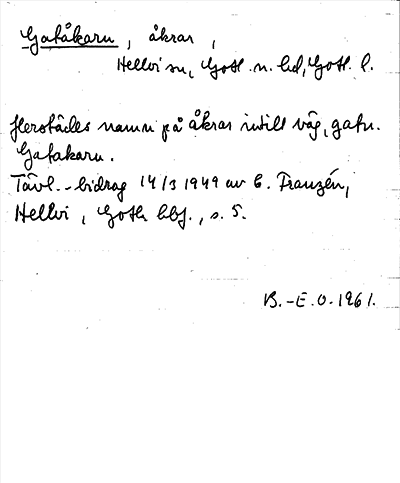 Gatåkaru, åkrar,
Hellvi sn, Gotl. n. hd, Gotl. l.
Flerstädes namn på åkrar intill väg, gatu.
Gatakaru.
Tävl.-bidrag 14/3 1949 av E. Franzén,
Hellvi, Gotl. hbf., s. 5.
B.-E.O. 1961.